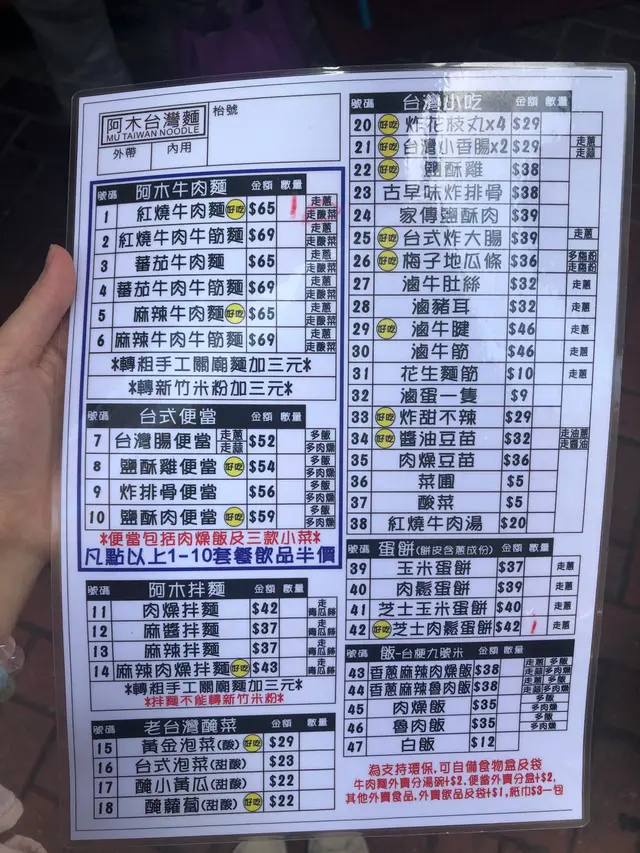 阿木台灣麵
MU TAIWAN NOODLE
外帶 內用
枱號
號碼 阿木牛肉麵 金額 數量
1 紅燒牛肉麵 好吃 $65 走蔥 走酸菜
2 紅燒牛肉牛筋麵 $69 走蔥 走酸菜
3 蕃茄牛肉麵 $65 走蔥 走酸菜
4 蕃茄牛肉牛筋麵 $69 走蔥 走酸菜
5 麻辣牛肉麵 好吃 $65 走蔥 走酸菜
6 麻辣牛肉牛筋麵 $69 走蔥 走酸菜
*轉粗手工關廟麵加三元*
*轉新竹米粉加三元*
號碼 台式便當 金額 數量
7 台灣腸便當 走蔥 走蒜 $52 多飯 多肉燥
8 鹽酥雞便當 好吃 $54 多飯 多肉燥
9 炸排骨便當 $56 多飯 多肉燥
10 鹽酥肉便當 好吃 $59 多飯 多肉燥
*便當包括肉燥飯及三款小菜*
凡點以上1-10套餐飲品半價
號碼 阿木拌麵 金額 數量
11 肉燥拌麵 $42 走青瓜絲
12 麻醬拌麵 $37 走青瓜絲
13 麻辣拌麵 $37 走青瓜絲
14 麻辣肉燥拌麵 好吃 $43 走青瓜絲
*轉粗手工關廟麵加三元*
*拌麵不能轉新竹米粉*
號碼 老台灣醃菜 金額 數量
15 黃金泡菜(酸) 好吃 $29
16 台式泡菜(甜酸) $23
17 醃小黃瓜(甜酸) $22
18 醃蘿蔔(甜酸) 好吃 $22
號碼 台灣小吃 金額 數量
20 好吃 炸花枝丸x4 $29
21 好吃 台灣小香腸x2 $29 走蔥 走蒜
22 好吃 鹽酥雞 $38
23 古早味炸排骨 $38
24 家傳鹽酥肉 $39
25 好吃 台式炸大腸 $39 走蔥
26 好吃 梅子地瓜條 $36 多梅粉 走梅粉
27 滷牛肚絲 $32 走蔥
28 滷豬耳 $32 走蔥
29 好吃 滷牛腱 $46 走蔥
30 滷牛筋 $46 走蔥
31 花生麵筋 $10 走蔥
32 滷蛋一隻 $9
33 好吃 炸甜不辣 $29
34 好吃 醬油豆苗 $32 走油蔥 走醬油
35 肉燥豆苗 $36
36 菜圃 $5
37 酸菜 $5
38 紅燒牛肉湯 $20
號碼 蛋餅(餅皮含蔥成份) 金額 數量
39 玉米蛋餅 $37 走蔥
40 肉鬆蛋餅 $39 走蔥
41 芝士玉米蛋餅 $40 走蔥
42 好吃 芝士肉鬆蛋餅 $42 走蔥
號碼 飯-台梗九號米 金額 數量
43 香蔥麻辣肉燥飯 $38 走蔥 多飯 走蒜 多肉燥
44 香蔥麻辣魯肉飯 $38 走蔥 多飯 走蒜 多肉燥
45 肉燥飯 $35 多飯 多肉燥
46 魯肉飯 $35 多飯 多肉燥
47 白飯 $12
為支持環保,可自備食物盒及袋
牛肉麵外賣分湯碗+$2,便當外賣分盒+$2,
其他外賣食品,外賣飲品及袋+$1,紙巾$3一包